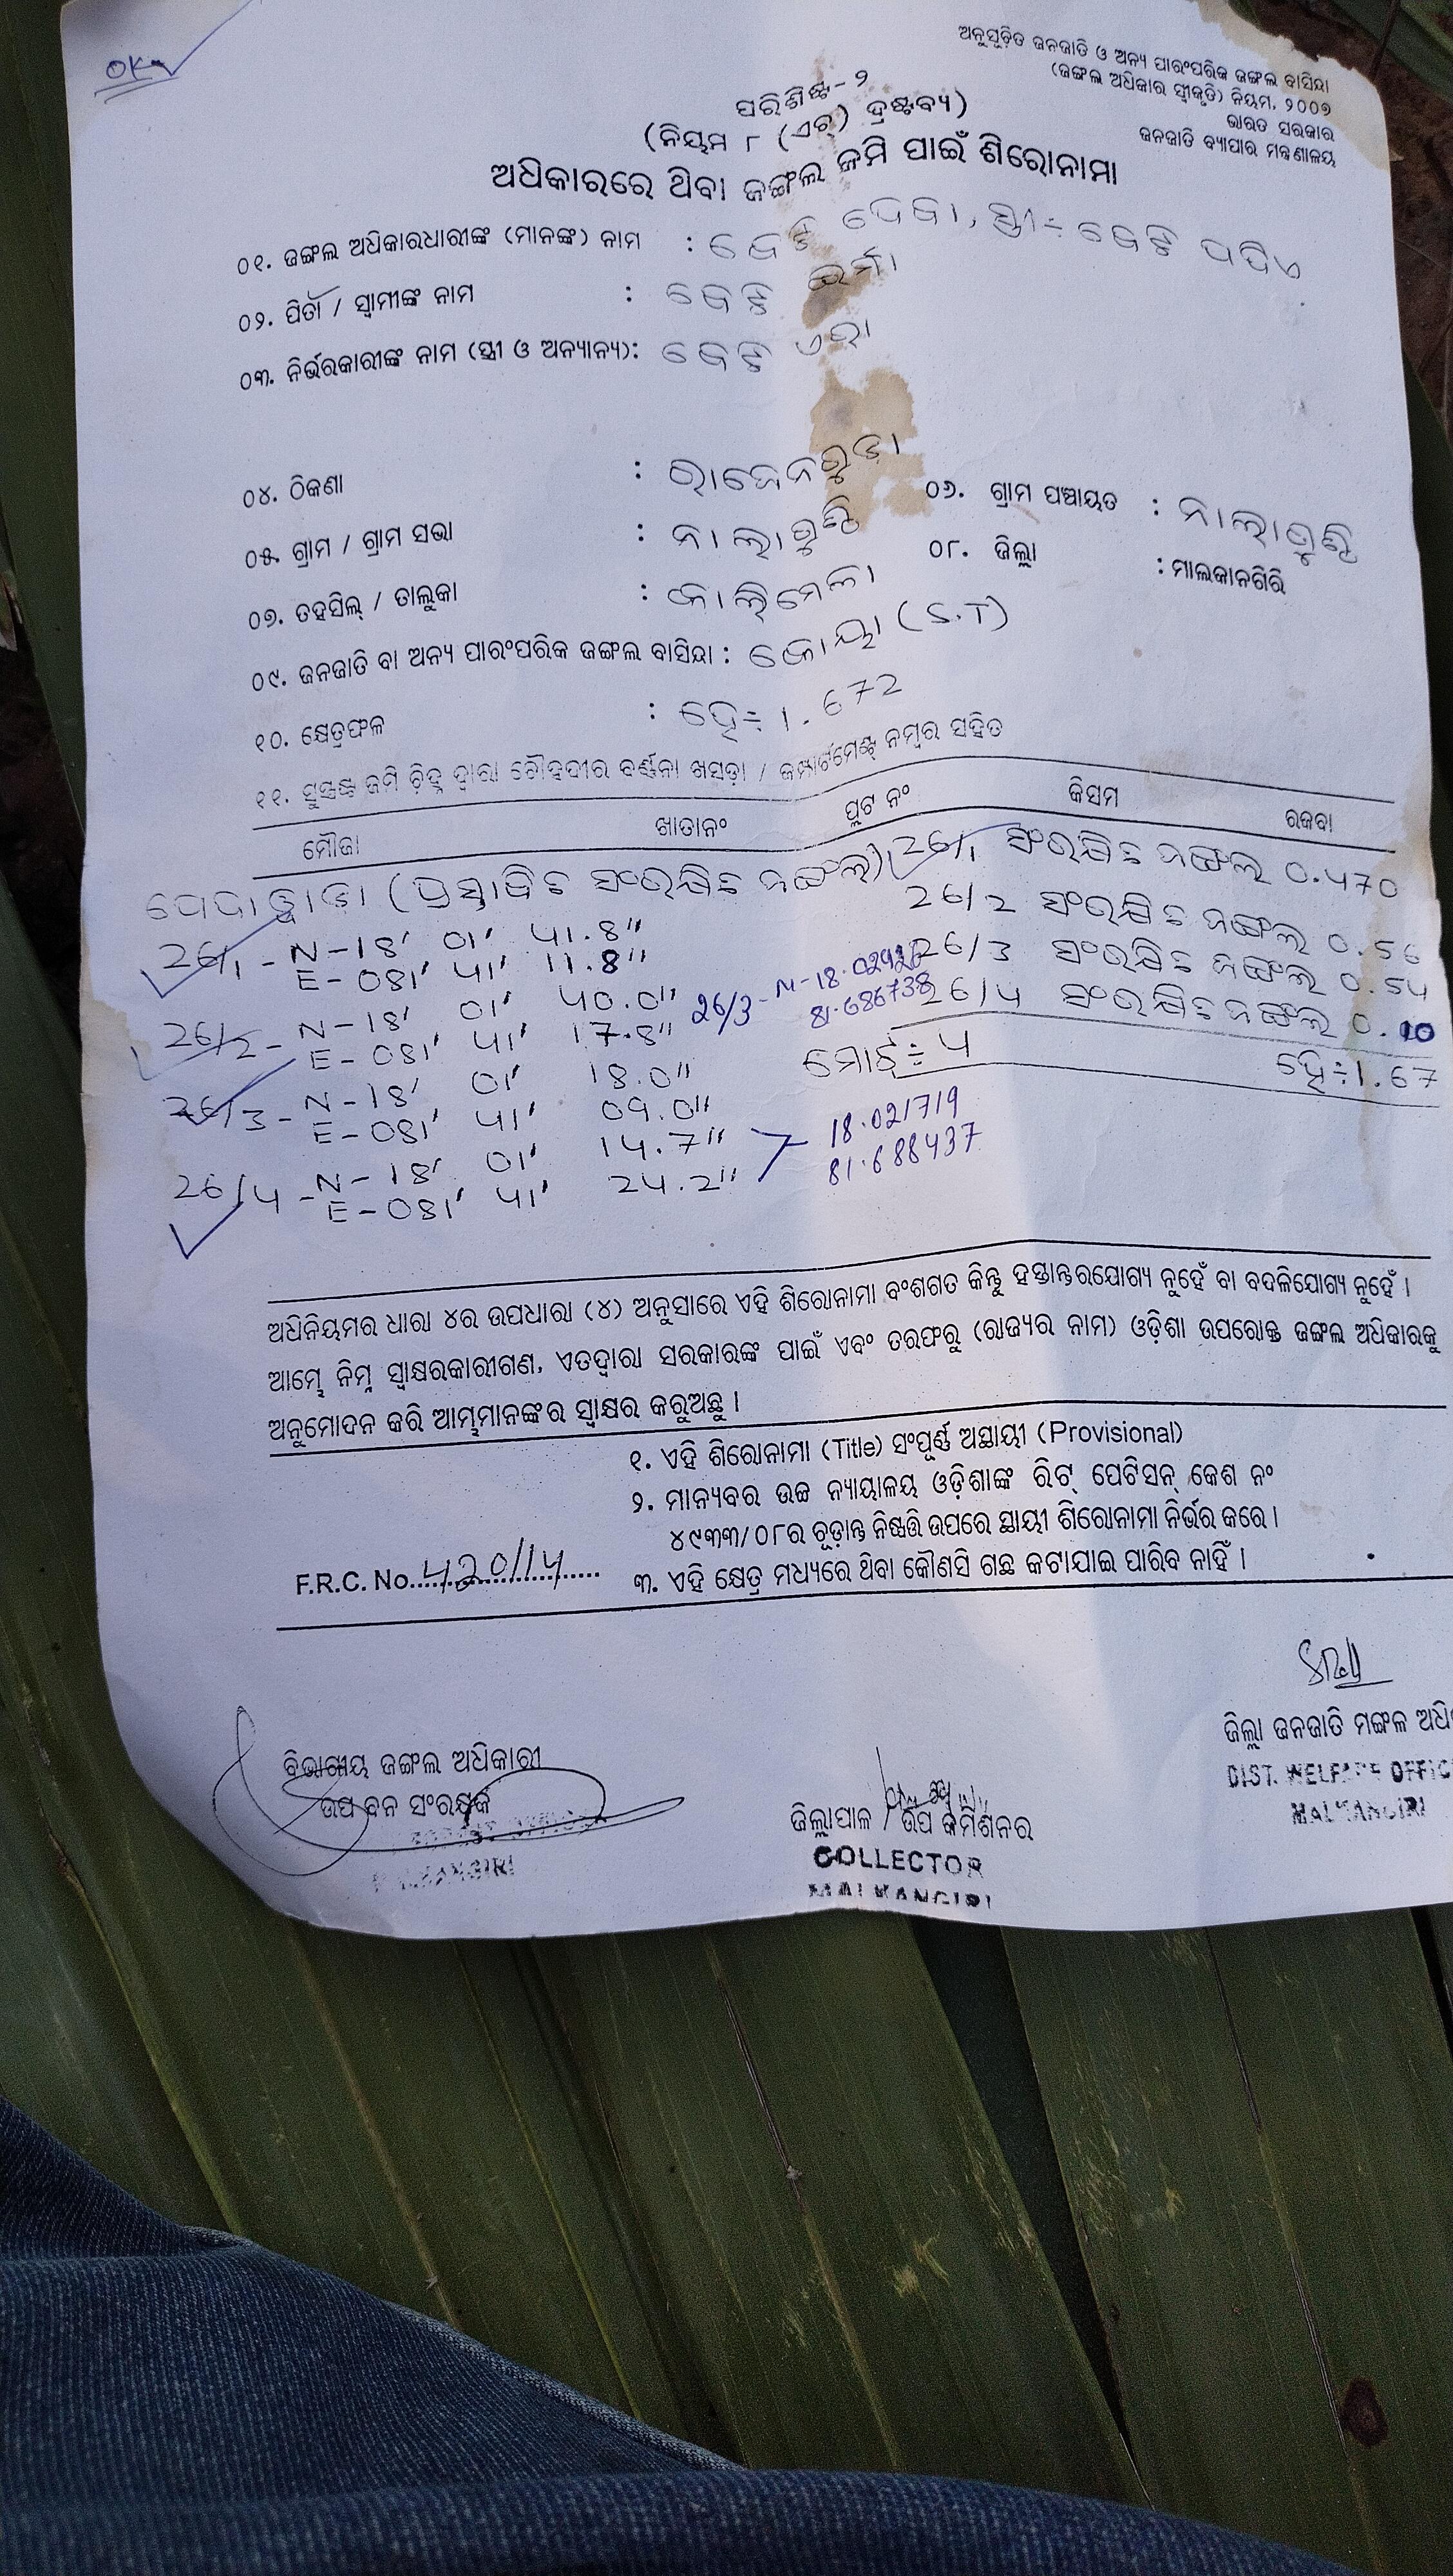 OK
ଅନୁସୂଚିତ ଜନଜାତି ଓ ଅନ୍ୟ ପାରଂପରିକ ଜଙ୍ଗଲ ବାସିନ୍ଦା
(ଜଙ୍ଗଲ ଅଧିକାର ସ୍ୱୀକୃତି) ନିୟମ, ୨୦୦୭
ଭାରତ ସରକାର
ଜନଜାତି ବ୍ୟାପାର ମନ୍ତ୍ରଣାଳୟ
ପରିଶିଷ୍ଟ-୨
(ନିୟମ ୮ (ଏଚ୍) ଦ୍ରଷ୍ଟବ୍ୟ)
ଅଧିକାରରେ ଥିବା ଜଙ୍ଗଲ ଜମି ପାଇଁ ଶିରୋନାମା
୦୧. ଜଙ୍ଗଲ ଅଧିକାରଧାରୀଙ୍କ (ମାନଙ୍କ) ନାମ : ବେଟି ଦେବା, ସ୍ତ୍ରୀ÷ ବେଟି
୦୨. ପିତା / ସ୍ୱାମୀଙ୍କ ନାମ : ବେଟି
୦୩. ନିର୍ଭରକାରୀଙ୍କ ନାମ (ସ୍ତ୍ରୀ ଓ ଅନ୍ୟାନ୍ୟ): ବେଟି
୦୪. ଠିକଣା :
୦୫. ଗ୍ରାମ / ଗ୍ରାମ ସଭା : ନାଲାଗୁଣ୍ଠି ୦୬. ଗ୍ରାମ ପଞ୍ଚାୟତ : ନାଲାଗୁଣ୍ଠି
୦୭. ତହସିଲ୍ / ତାଲୁକା : କାଲିମେଳା ୦୮. ଜିଲ୍ଲା : ମାଲକାନଗିରି
୦୯. ଜନଜାତି ବା ଅନ୍ୟ ପାରଂପରିକ ଜଙ୍ଗଲ ବାସିନ୍ଦା : କୋୟା (S.T)
୧୦. କ୍ଷେତ୍ରଫଳ : ହେ÷ 1.672
୧୧. ସୁସ୍ପଷ୍ଟ ଜମି ଚିହ୍ନ ଦ୍ୱାରା ଚୌହଦୀର ବର୍ଣ୍ଣନା ଖସଡ଼ା / କମ୍ପାର୍ଟମେଣ୍ଟ ନମ୍ବର ସହିତ
ମୌଜା ଖାତାନଂ ପ୍ଲଟ ନଂ କିସମ ରକବା
(ପ୍ରସ୍ତାବିତ ସଂରକ୍ଷିତ ଜଙ୍ଗଲ) 26/1 ସଂରକ୍ଷିତ ଜଙ୍ଗଲ 0.470
26/2 ସଂରକ୍ଷିତ ଜଙ୍ଗଲ 0.56
26/3 ସଂରକ୍ଷିତ ଜଙ୍ଗଲ 0.54
26/4 ସଂରକ୍ଷିତ ଜଙ୍ଗଲ 0.10
ମୋଟ÷ 4 ହେ÷1.67
26/1 - N-18' 01' 41.8"
E-081' 41' 11.8"
26/2 - N-18' 01' 40.0"
E-081' 41' 17.8"
26/3 - N-18'
81.686738
26/3 - N-18' 01' 18.0"
E-081' 41' 09.0"
26/4 - N-18' 01' 14.7" 18.021719
E-081' 41' 24.2" 81.688437
ଅଧିନିୟମର ଧାରା ୪ର ଉପଧାରା (୪) ଅନୁସାରେ ଏହି ଶିରୋନାମା ବଂଶଗତ କିନ୍ତୁ ହସ୍ତାନ୍ତରଯୋଗ୍ୟ ନୁହେଁ ବା ବଦଳିଯୋଗ୍ୟ ନୁହେଁ ।
ଆମ୍ଭେ ନିମ୍ନ ସ୍ୱାକ୍ଷରକାରୀଗଣ, ଏତଦ୍ୱାରା ସରକାରଙ୍କ ପାଇଁ ଏବଂ ତରଫରୁ (ରାଜ୍ୟର ନାମ) ଓଡ଼ିଶା ଉପରୋକ୍ତ ଜଙ୍ଗଲ ଅଧିକାରକୁ
ଅନୁମୋଦନ କରି ଆମ୍ଭମାନଙ୍କର ସ୍ୱାକ୍ଷର କରୁଅଛୁ ।
୧. ଏହି ଶିରୋନାମା (Title) ସଂପୂର୍ଣ୍ଣ ଅସ୍ଥାୟୀ (Provisional)
୨. ମାନ୍ୟବର ଉଚ୍ଚ ନ୍ୟାୟାଳୟ ଓଡ଼ିଶାଙ୍କ ରିଟ୍ ପେଟିସନ୍ କେଶ ନଂ
୪୯୩୩/୦୮ର ଚୂଡ଼ାନ୍ତ ନିଷ୍ପତ୍ତି ଉପରେ ସ୍ଥାୟୀ ଶିରୋନାମା ନିର୍ଭର କରେ ।
F.R.C. No. 420/14
୩. ଏହି କ୍ଷେତ୍ର ମଧ୍ୟରେ ଥିବା କୌଣସି ଗଛ କଟାଯାଇ ପାରିବ ନାହିଁ ।
ବିଭାଗୀୟ ଜଙ୍ଗଲ ଅଧିକାରୀ
ଉପ ବନ ସଂରକ୍ଷକ
ଜିଲ୍ଲାପାଳ / ଉପ କମିଶନର
COLLECTOR
MALKANGIRI
ଜିଲ୍ଲା ଜନଜାତି ମଙ୍ଗଳ ଅଧି
DIST. WELFARE OFFIC
MALKANGIRI